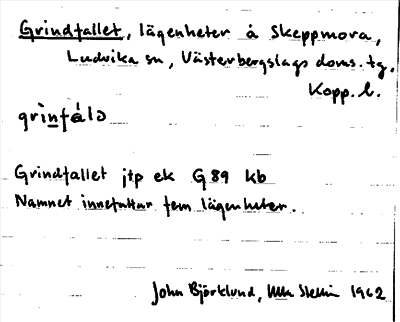 Grindfallet, lägenheter å Skeppmora,
Ludvika sn, Västerbergslags doms. tg.
Kopp. l.
grìnfálə
Grindfallet jtp ek G 89 kb
Namnet innefattar fem lägenheter.
John Björklund, 1962